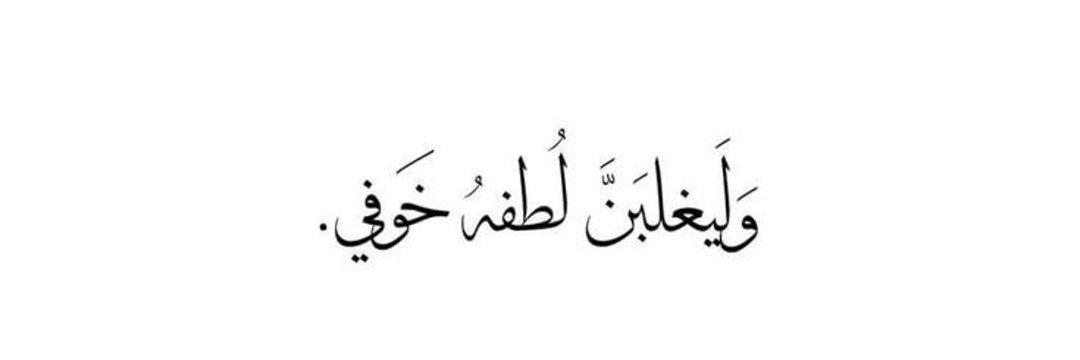 وَلَيغلبَنَّ لُطفهُ خَوَفي.